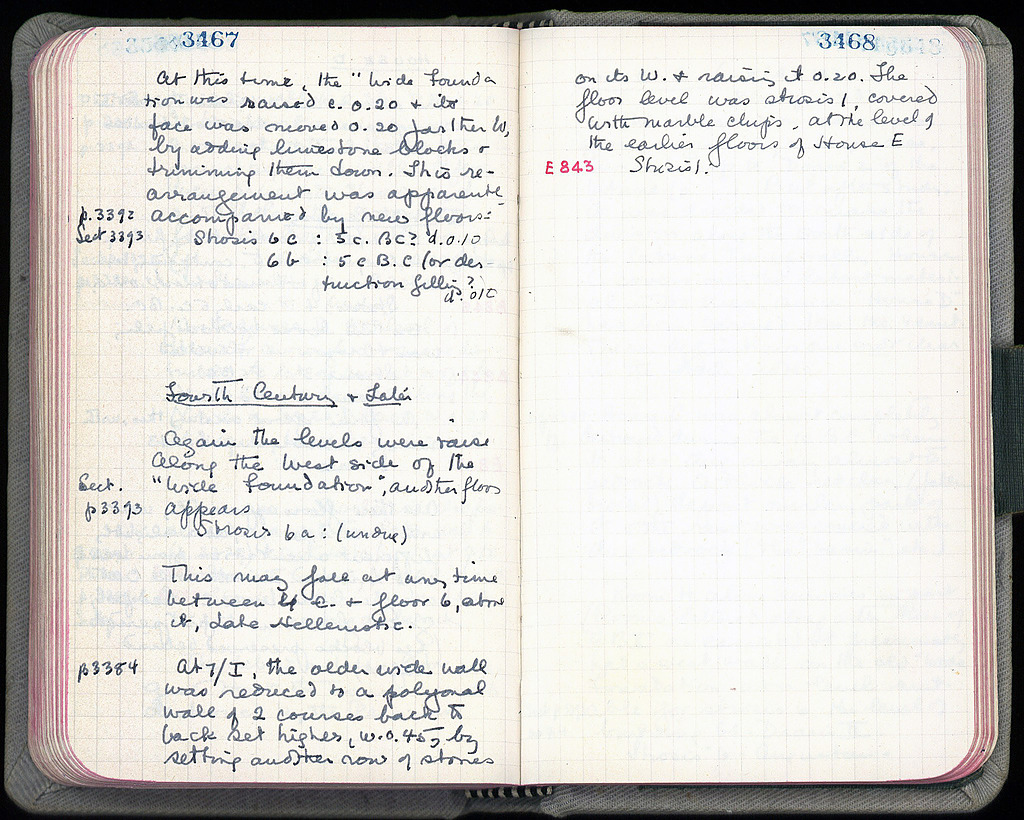 3467
At this time, the "Wide Founda
tion was raised c. 0.20 & its
face was moved 0.20 farther W,
by adding limestone blocks &
trimming them down. This re-
arrangement was apparentl
p.3392 accompanied by new floors:
Sect 3393 Strosis 6c : 5 c. BC? d. 0.10
6b : 5 c B.C (or des-
truction filling?)
d. 0.10
Fourth Century & Later
Again the levels were raise
along the West side of the
Sect. "Wide Foundation", another floor
p3393 appears
Strosis 6a : (undug)
This may fall at any time
between 4 C. & floor 6, above
it, late Hellenistic.
p3384 At 7/I, the older wide wall
was reduced to a polygonal
wall of 2 courses back to
back set higher, w. 0.45, by
setting another row of stones
3468
on its W. & raising it 0.20. The
floor level was strosis 1, covered
with marble chips, at the level of
the earlier floors of House E
E 843 Strosis 1.